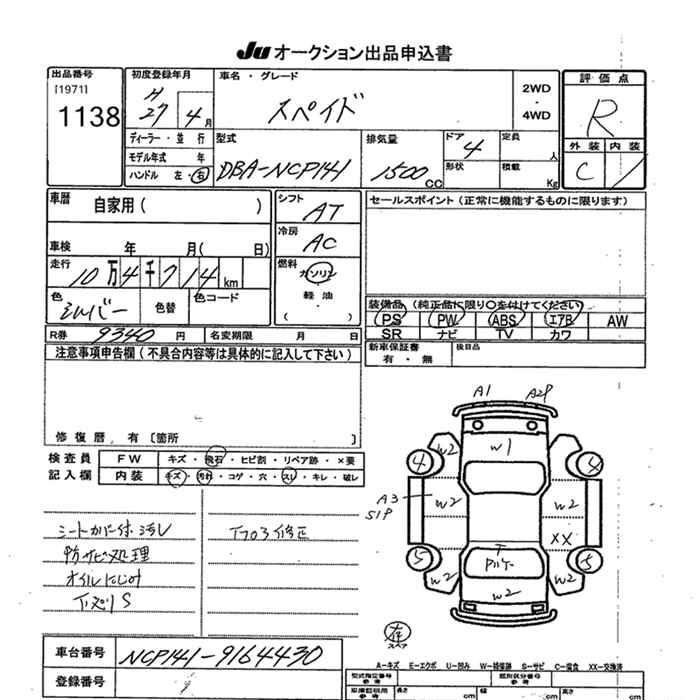 Ju オークション出品申込書
出品番号
[1971]
1138
初度登録年月
H
27 4月
車名・グレード
スペイド
2WD
・
4WD
評価点
R
外装 内装
C
ディーラー・並行
モデル年式 年
ハンドル 左・右
型式
DBA-NCP141
排気量
1500cc
ドア
4
形状
定員
人
積載
Kg
車歴
自家用( )
車検 年 月( 日)
走行
10万4千714km
色
シルバー
色替
色コード
シフト
AT
冷房
AC
燃料
ガソリン
軽油
( )
セールスポイント(正常に機能するものに限ります)
装備品(純正品に限り○を付けてください)
PS PW ABS エアB AW
SR ナビ TV カワ
R券 9340円
名変期限 月 日
新車保証書
有・無
後日品
注意事項申告欄(不具合内容等は具体的に記入して下さい)
修復歴、有〔箇所 〕
検査員
記入欄
FW キズ・飛石・ヒビ割・リペア跡・×要
内装 キズ・汚れ・コゲ・穴・スレ・キレ・破レ
シートカバー付、汚レ
防サビ処理
オイルにじみ
下廻リS
A1 A2P
W2 W1 W2
4 4
A3
S1P
W2 W2
XX
5 5
W2 W2
W2
存
スペア
A-キズ E-エクボ U-凹み W-補修跡 S-サビ C-腐食 XX-交換済
車台番号 NCP141-9164430
登録番号
型式指定番号
参考
類別区分番号
参考
車庫証明用
参考
長さ cm 幅 cm 高さ cm